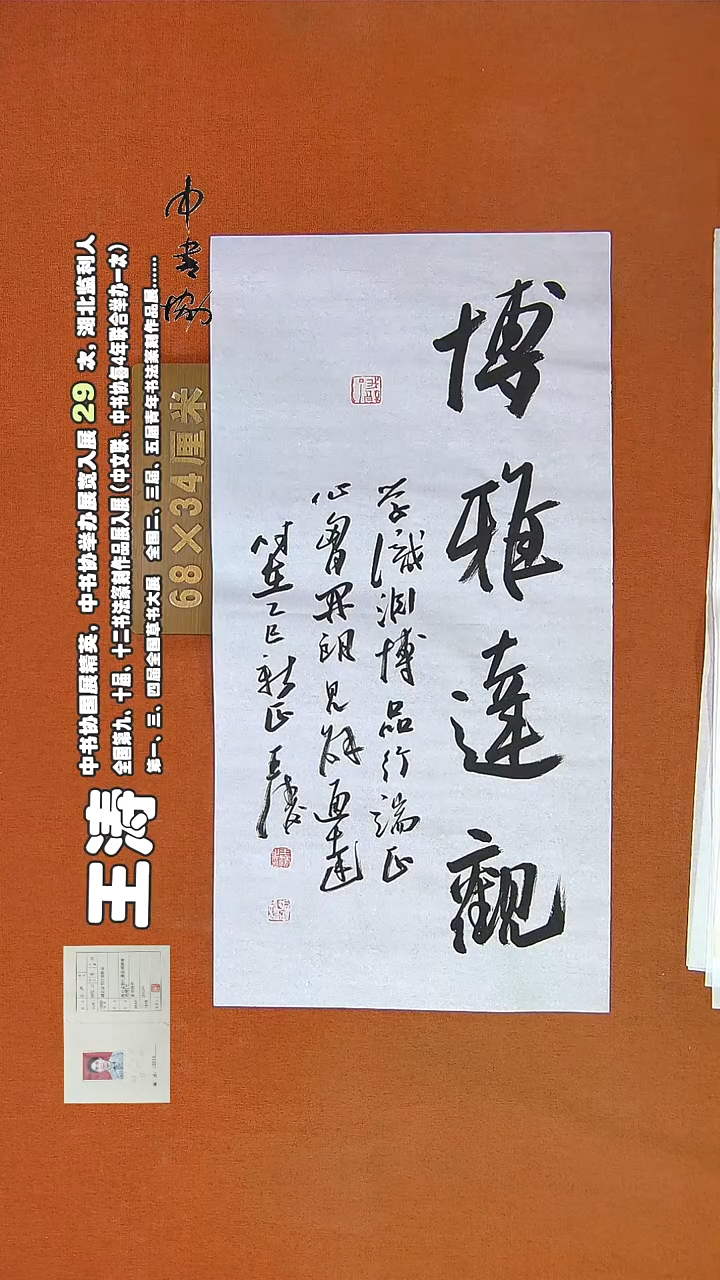 博雅達觀
学識渊博品行端正
心胷开朗見解通達
时在乙巳新正王涛
中書協
68×34厘米
王涛
中书协国展精英，中书协举办展览入展 29 次，湖北监利人
全国第九、十届、十二书法篆刻作品展入展（中文联、中书协每4年联合举办一次）
第一、三、四届全国草书大展 全国二、三届、五届青年书法篆刻作品展......